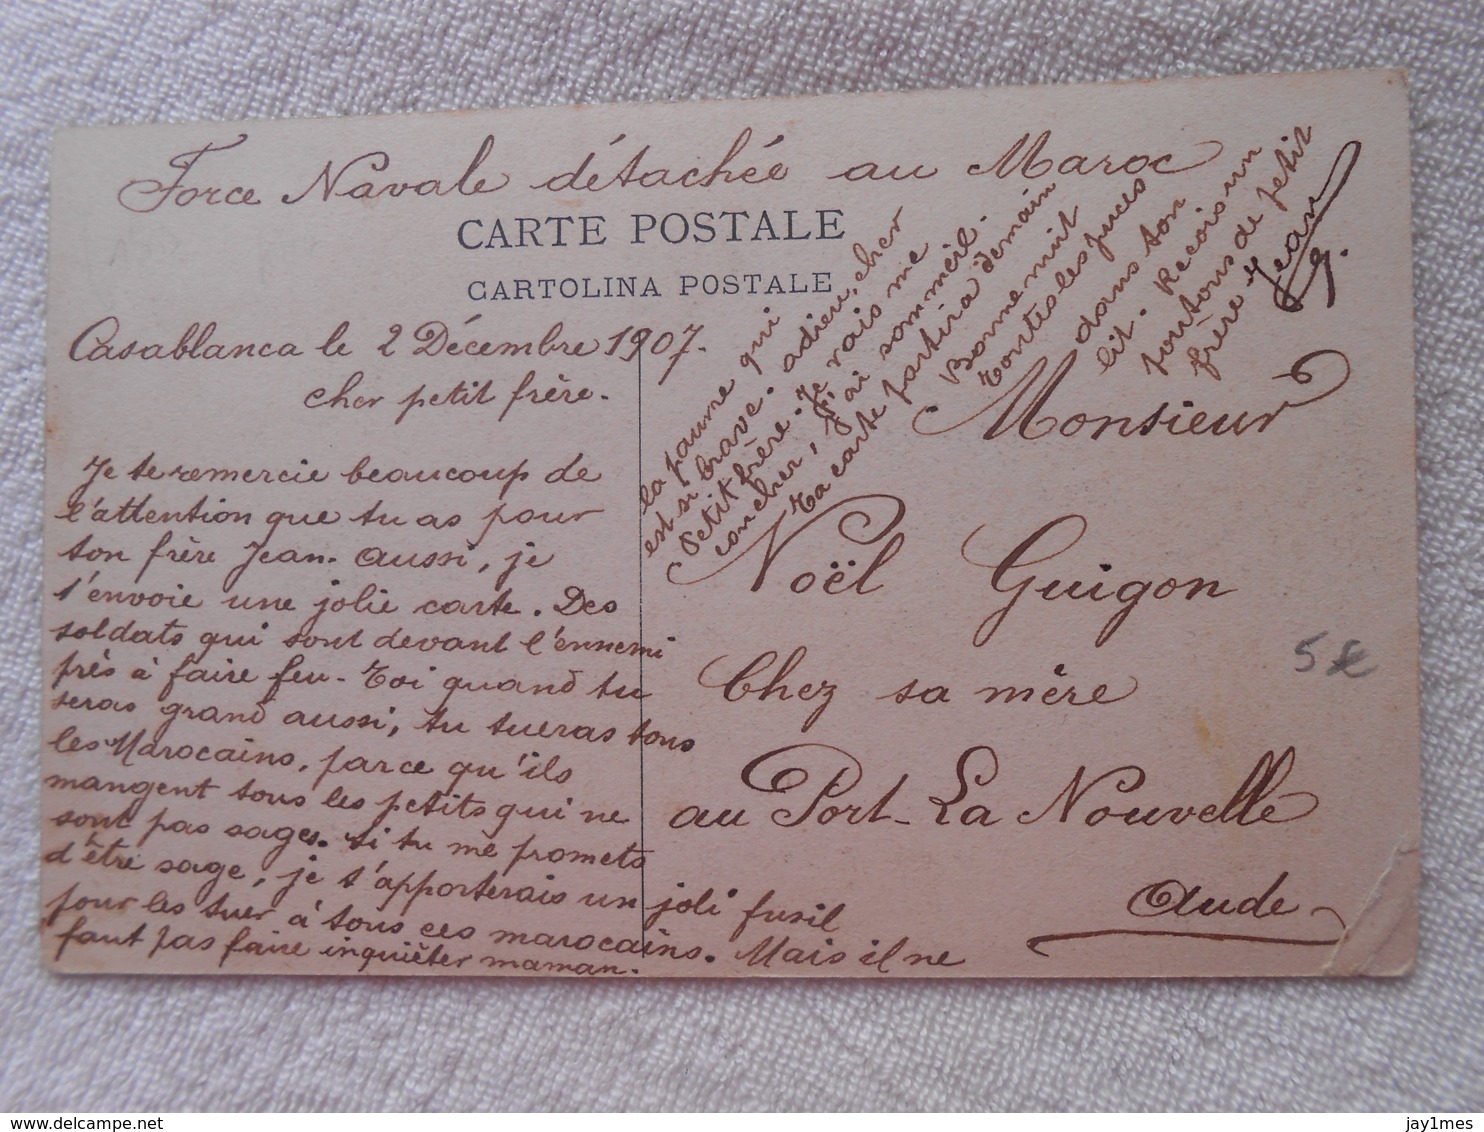 Force Navale détachée au Maroc
CARTE POSTALE
CARTOLINA POSTALE
Casablanca le 2 Décembre 1907.
cher petit frère.
Je te remercie beaucoup de
l'attention que tu as pour
ton frère Jean. aussi, je
t'envoie une jolie carte. Des
soldats qui sont devant l'ennemi
près à faire feu - Toi quand tu
seras grand aussi, tu tueras tous
les Marocains, parce qu'ils
mangent tous les petits qui ne
sont pas sages. Si tu me promets
d'être sage, je t'apporterais un joli fusil
pour les tuer à tous ces marocains. Mais il ne
faut pas faire inquièter maman.
la paume qui
est si brave. adieu, cher
Petit frère. Je vais me
coucher, j'ai sommeil.
Ta carte partira demain
Bonne nuit
Toutes les puces
dans ton
lit. Recois un
poutons de petit
frère Jean
G.
Monsieur
Noël Guigon
Chez sa mère
au Port-La Nouvelle
Aude
5€
delcampe.net
jay1mes